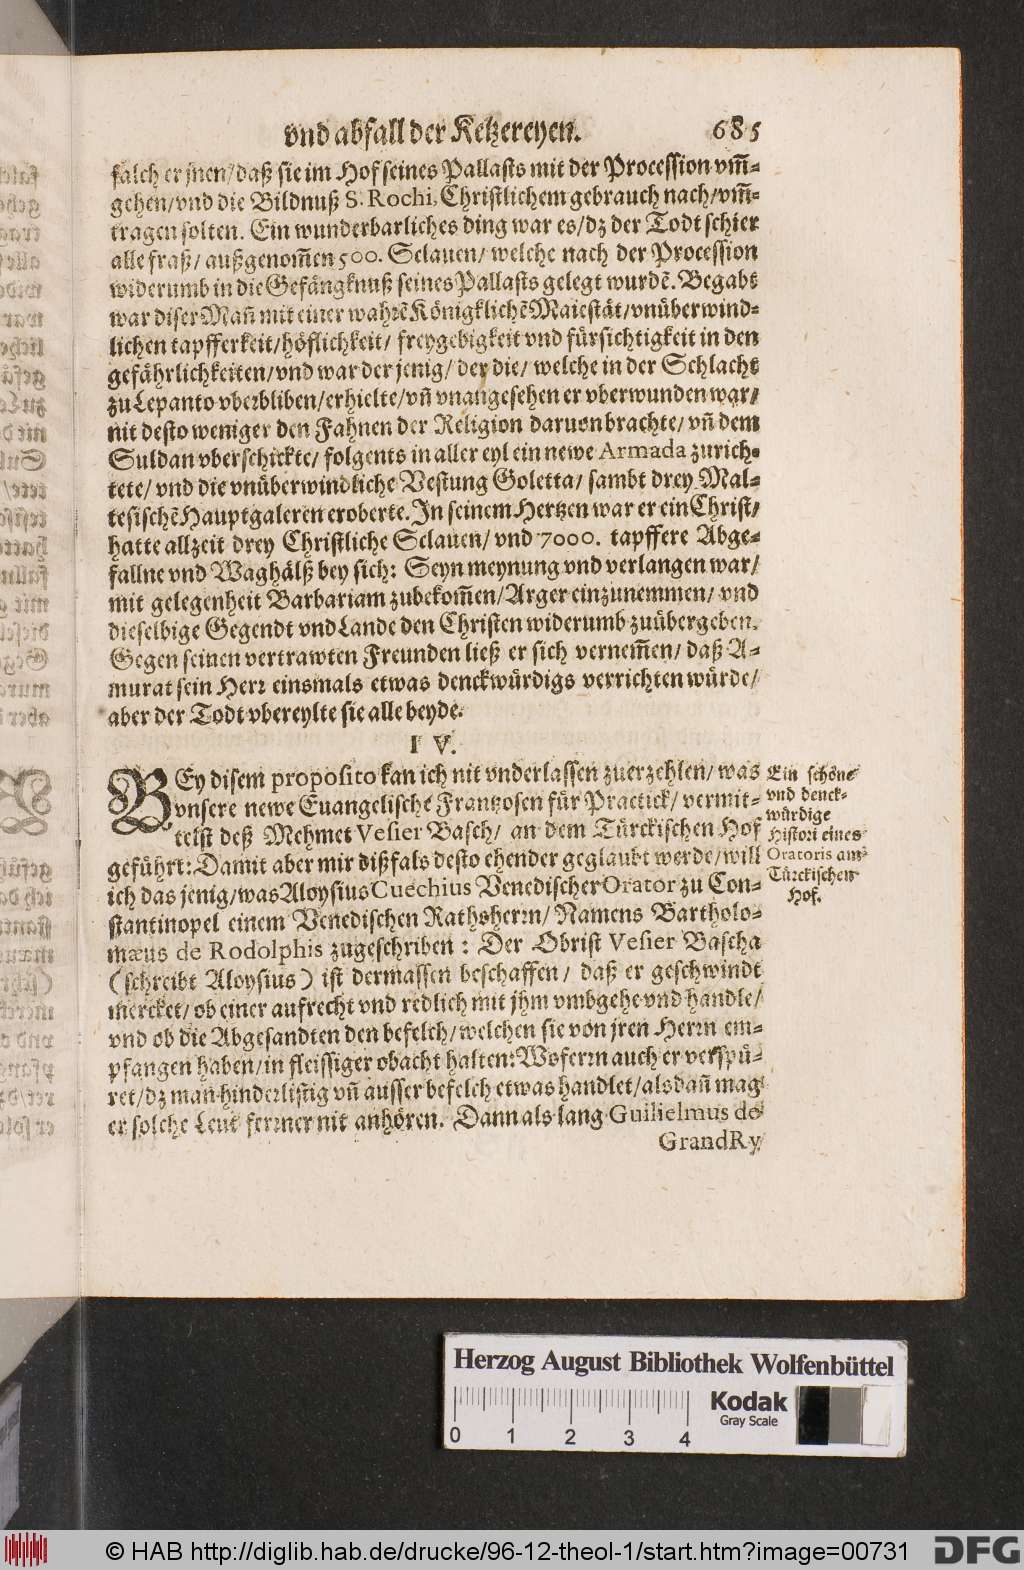 vnd abfall der Ketzereyen. 685
falch er jnen/ daß sie im Hof seines Pallasts mit der Procession vm̃-
gehen/ vnd die Bildnuß S. Rochi, Christlichem gebrauch nach/ vm̃-
tragen solten. Ein wunderbarliches ding war es/ dz der Todt schier
alle fraß/ außgenom̃en 500. Sclauen/ welche nach der Procession
widerumb in die Gefängknuß seines Pallasts gelegt wurdẽ. Begabt
war diser Mañ mit einer wahrẽ Königklichẽ Maiestät/ vnüberwind-
lichen tapfferkeit/ höflichkeit/ freygebigkeit vnd fürsichtigkeit in den
gefährlichkeiten/ vnd war der jenig/ der die/ welche in der Schlacht
zu Lepanto vberbliben/ erhielte/ vñ vnangesehen er vberwunden war/
nit desto weniger den Fahnen der Religion daruon brachte/ vñ dem
Suldan vberschickte/ folgents in aller eyl ein newe Armada zurich-
tete/ vnd die vnüberwindliche Vestung Goletta/ sambt drey Mal-
tesischẽ Hauptgaleren eroberte. In seinem Hertzen war er ein Christ/
hatte allzeit drey Christliche Sclauen/ vnd 7000. tapffere Abge-
fallne vnd Waghälß bey sich: Seyn meynung vnd verlangen war/
mit gelegenheit Barbariam zubekom̃en/ Arger einzunemmen/ vnd
dieselbige Gegendt vnd Lande den Christen widerumb zuübergeben.
Gegen seinen vertrawten Freunden ließ er sich vernem̃en/ daß A-
murat sein Herr einsmals etwas denckwürdigs verrichten würde/
aber der Todt vbereylte sie alle beyde.
I V.
BEy disem proposito kan ich nit vnderlassen zuerzehlen/ was
vnsere newe Euangelische Frantzosen für Practick/ vermit-
telst deß Mehmet Vesier Basch/ an dem Türckischen Hof
geführt: Damit aber mir dißfals desto ehender geglaubt werde/ will
ich das jenig/ was Aloysius Cuechius Venedischer Orator zu Con-
stantinopel einem Venedischen Rathsherrn/ Namens Bartholo-
mæus de Rodolphis zugeschriben: Der Obrist Vesier Bascha
(schreibt Aloysius) ist dermassen beschaffen/ daß er geschwindt
mercket/ ob einer aufrecht vnd redlich mit jhm vmbgehe vnd handle/
vnd ob die Abgesandten den befelch/ welchen sie von jren Herrn em-
pfangen haben/ in fleissiger obacht halten: Woferrn auch er verspü-
ret/ dz man hinderlistig vñ ausser befelch etwas handlet/ alsdañ mag
er solche Leut ferrner nit anhören. Dann als lang Guilielmus de
GrandRy
Ein schöne
vnd denck-
würdige
Histori eines
Oratoris am
Türckischen
Hof.
Herzog August Bibliothek Wolfenbüttel
Kodak
Gray Scale
0 1 2 3 4
© HAB http://diglib.hab.de/drucke/96-12-theol-1/start.htm?image=00731
DFG